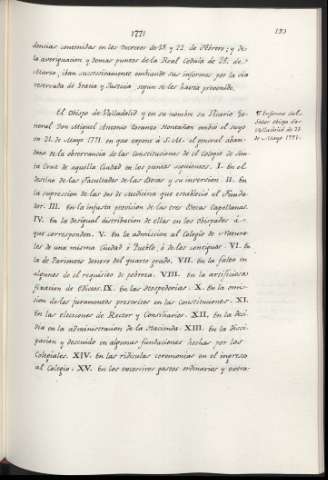 1771
193
dencias contenidas en los Decretos de 15. y 22. de Febrero; y de-
la averiguacion y demas puntos de la Real Cedula de 25. de-
Marzo, iban succesivamente embiando sus informes por la via
reservada de Gracia y Justicia, segun se les havia prevenido.
El Obispo de Valladolid y en su nombre su Vicario Ge-
neral Don Miguel Antonio Tarancon Montalban embió el suyo
en 21. de Mayo 1771. en que expone á S. M. el general aban-
dono de la observancia de las Constituciones de el Colegio de San-
ta Cruz de aquella Ciudad en los puntos siguientes. I. En el
destino de las Facultades de las Becas y su inversion II. En
la supresion de las dos de Medicina que estableció el Funda-
dor. III. En la injusta provision de las tres Becas Capellanas.
IV. En la desigual distribucion de ellas en los Obispados á-
que corresponden. V. En la admision al Colegio de Natura-
les de una misma Ciudad ó Pueblo, ó de los contiguos. VI. En
la de Parientes dentro del quarto grado. VII. En la falta en
algunos de el requisito de pobreza. VIII. En la artificiosa
fixacion de Edictos. IX. En las Hospederias. X. En la omi-
sion de los juramentos prescritos en las Constituciones. XI.
En las elecciones de Rector y Consiliarios. XII. En la desi-
dia en la administracion de la Hacienda. XIII. En la disci-
pacion y descuido en algunas fundaciones hechas por los
Colegiales. XIV. En las ridiculas ceremonias en el ingreso
al Colegio. XV. En los excesivos gastos ordinarios y extra-
¶ Informe del
Señor Obispo de-
Valladolid de 21.
de Mayo 1771.